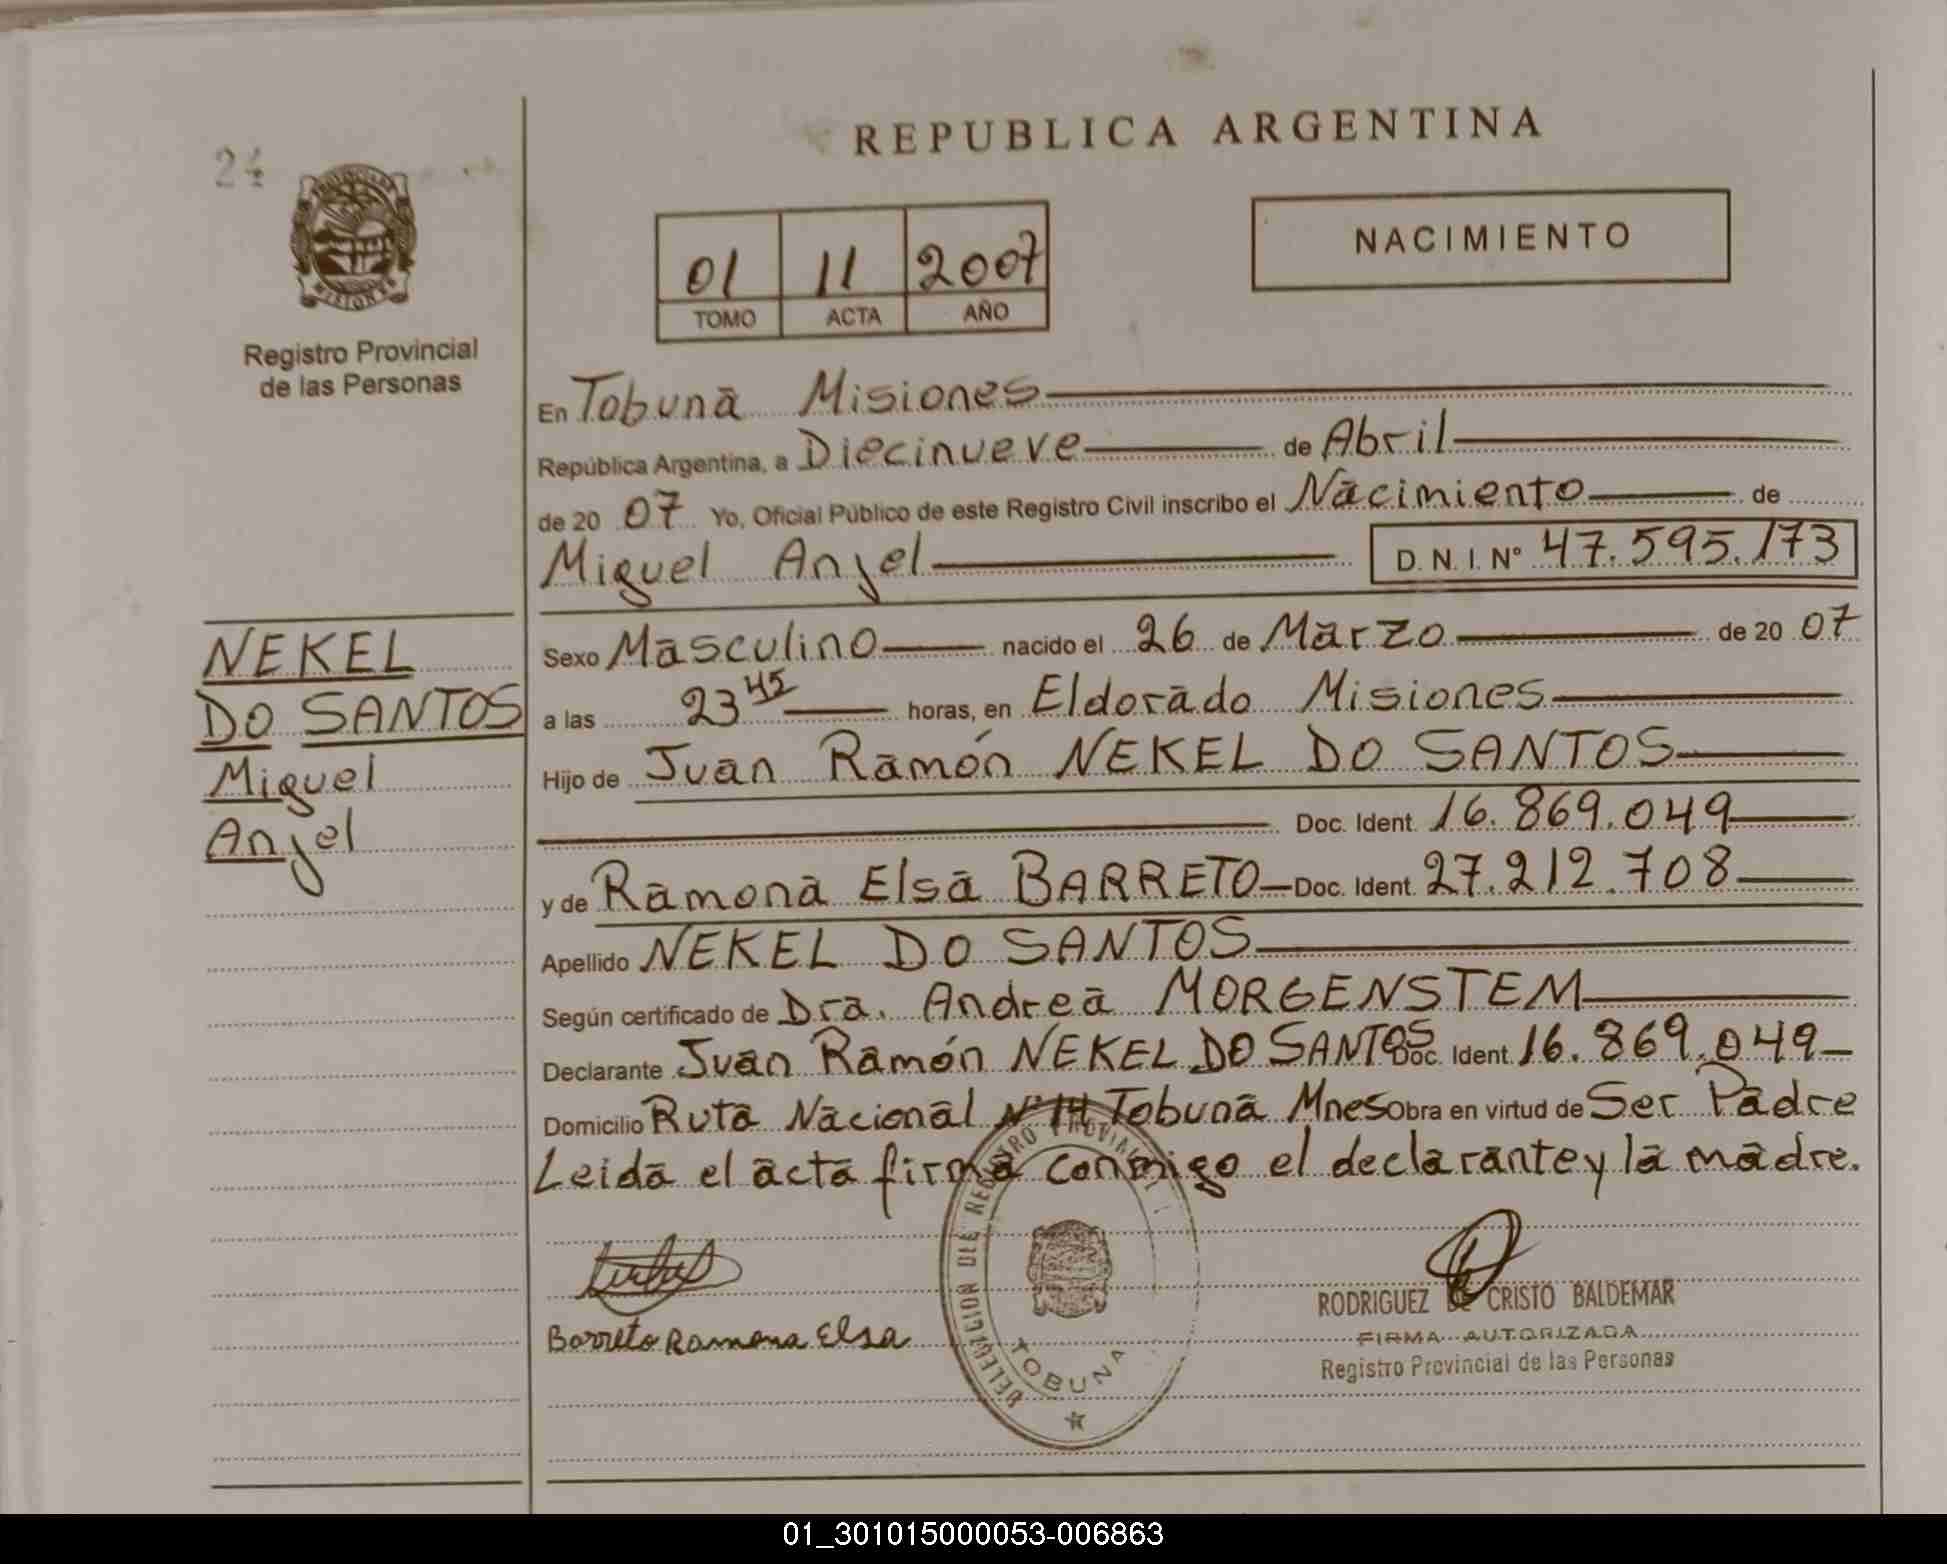 24
REPUBLICA ARGENTINA
PROVINCIA DE
MISIONES
Registro Provincial
de las Personas
01 11 2007
TOMO ACTA AÑO
NACIMIENTO
En Tobuna Misiones
República Argentina, a Diecinueve de Abril
de 20 07 Yo, Oficial Público de este Registro Civil inscribo el Nacimiento de
Miguel Anjel D. N. I. N° 47.595.173
NEKEL
DO SANTOS
Miguel
Anjel
Sexo Masculino nacido el 26 de Marzo de 20 07
a las 23 45 horas, en Eldorado Misiones
Hijo de Juan Ramón NEKEL DO SANTOS
Doc. Ident. 16.869.049
y de Ramona Elsa BARRETO Doc. Ident. 27.212.708
Apellido NEKEL DO SANTOS
Según certificado de Dra. Andrea MORGENSTEM
Declarante Juan Ramón NEKEL DO SANTOS Doc. Ident. 16.869.049
Domicilio Ruta Nacional N° 14 Tobuna Mnes Obra en virtud de Ser Padre
Leida el acta firma conmigo el declarante y la madre.
Barreto Ramona Elsa
REGISTRO PROVINCIAL
TOBUNA
RODRIGUEZ DE CRISTO BALDEMAR
FIRMA AUTORIZADA
Registro Provincial de las Personas
01_301015000053-006863